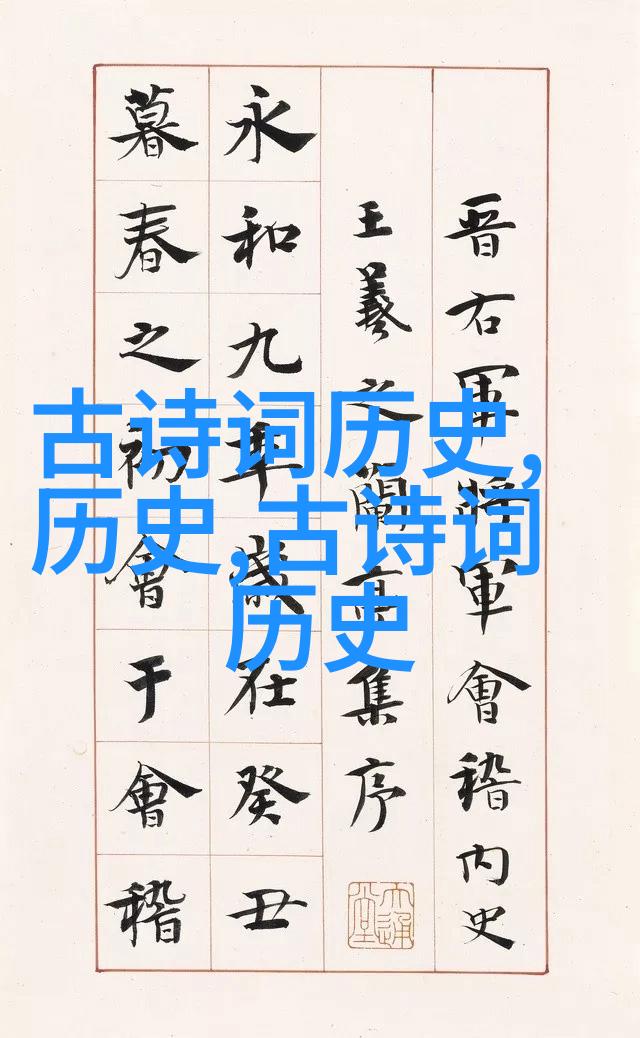 晋右軍將軍會稽内史
王羲之蘭亭集序
永和九年歲在癸丑
暮春之初會于會稽
古诗词历史,
历史,古诗词
历史